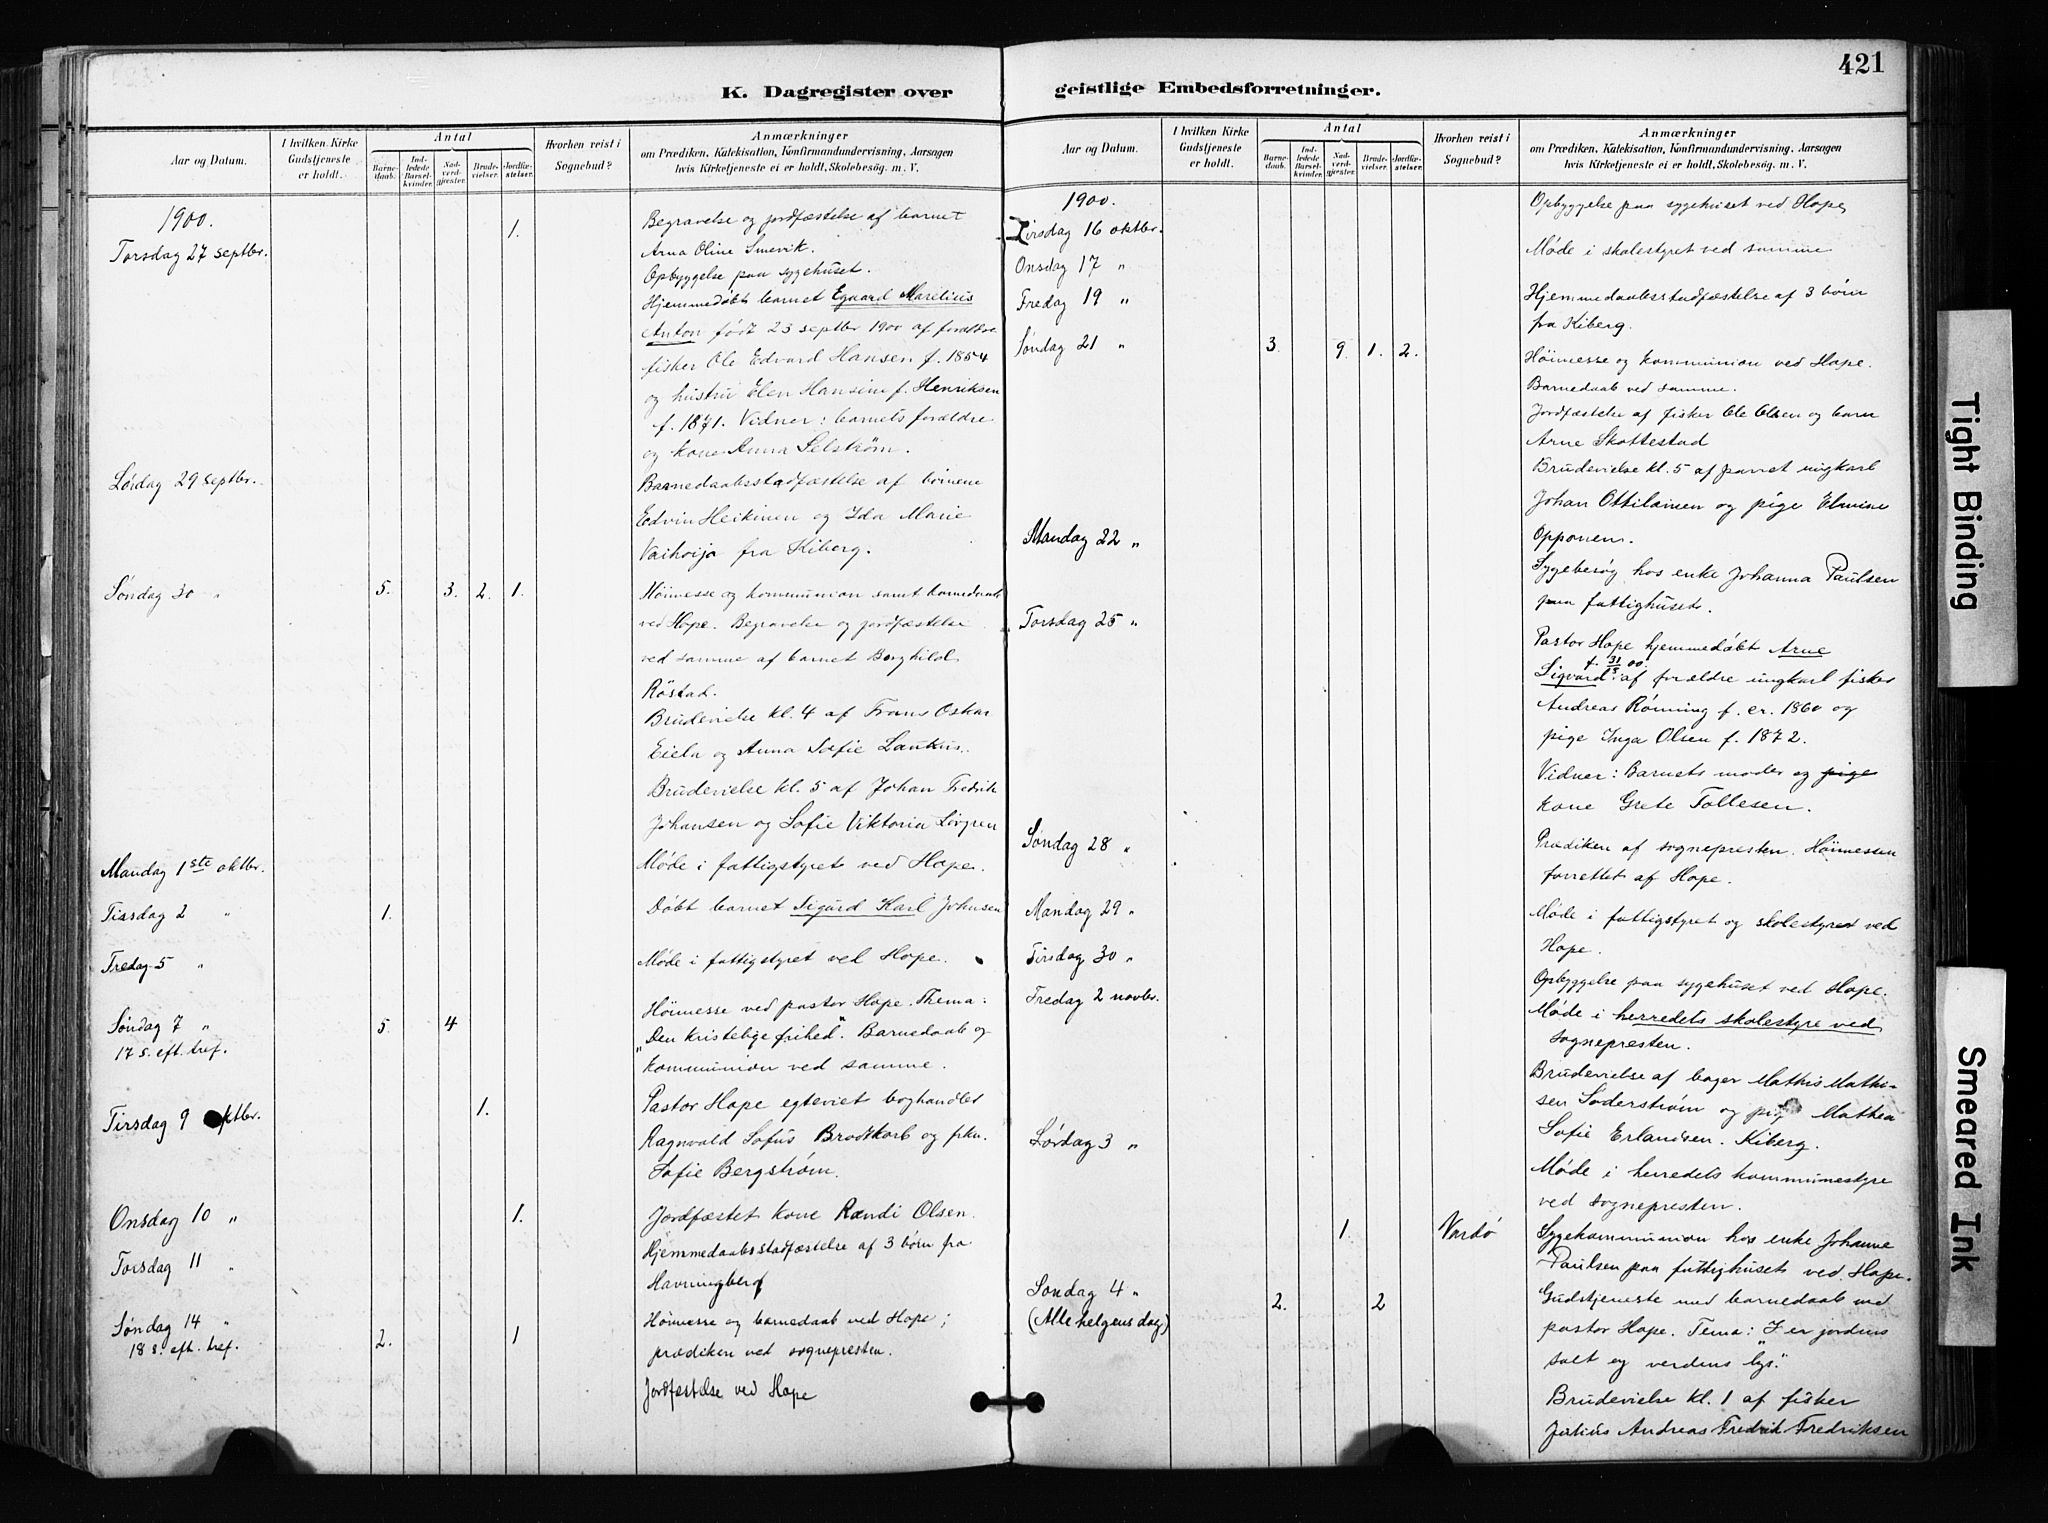 421
K. Dagregister over geistlige Embedsforretninger.
Aar og Datum.
I hvilken Kirke Gudstjeneste er holdt.
Antal
Barne-daab.
Ind-ledede Barsel-kvinder.
Nad-verd-gjester.
Brude-vielser.
Jordfæ-stelser.
Hvorhen reist i Sognebud?
Anmærkninger
om Prædiken, Katekisation, Konfirmandundervisning, Aarsagen
hvis Kirketjeneste ei er holdt, Skolebesøg. m. V.
1900.
Torsdag 27 septbr. 1. Begravelse og jordfæstelse af barnet
Arna Oline Smevik.
Opbyggelse paa sygehuset.
Hjemmedøbt barnet Edvard Marelius
Anton født 23 septbr 1900 af forældre
fisker Ole Edvard Hansen f. 1854
og hustru Elen Hansine f. Henriksen
f. 1871. Vidner: barnets forældre
og kone Anna Selstrøm.
Lørdag 29 septbr. Barnedaabsstadfæstelse af børnene
Edvin Heikinen og Ida Marie
Vaihoija fra Kiberg.
Søndag 30 " 5. 3. 2. 1. Høimesse og kommunion samt barnedaab
ved Hope. Begravelse og jordfæstelse
ved samme af barnet Borghild
Røstad.
Brudevielse kl. 4 af Frans Oskar
Eiela og Anna Sofie Laukus.
Brudevielse kl. 5 af Johan Fredrik
Johansen og Sofie Viktoria Løvgren
Mandag 1ste oktbr. Møde i fattigstyret ved Hope.
Tirsdag 2 " 1. Døbt barnet Sigurd Karl Johnsen
Fredag 5 " Møde i fattigstyret ved Hope.
Søndag 7 " 5. 4 Høimesse ved pastor Hope. Thema:
17 s. eft. tref. "Den kristelige frihed". Barnedaab og
kommunion ved samme.
Tirsdag 9 oktbr. 1. Pastor Hope egteviet boghandler
Ragnvald Sofus Brodtkorb og frkn.
Sofie Bergstrøm.
Onsdag 10 " 1. Jordfæstet kone Randi Olsen.
Torsdag 11 " Hjemmedaabsstadfæstelse af 3 børn fra
Havningberg
Søndag 14 " 2. 1 Høimesse og barnedaab ved Hope;
18 s. eft. tref. prædiken ved sognepresten.
Jordfæstelse ved Hope
Aar og Datum.
I hvilken Kirke Gudstjeneste er holdt.
Antal
Barne-daab.
Ind-ledede Barsel-kvinder.
Nad-verd-gjester.
Brude-vielser.
Jordfæ-stelser.
Hvorhen reist i Sognebud?
Anmærkninger
om Prædiken, Katekisation, Konfirmandundervisning, Aarsagen
hvis Kirketjeneste ei er holdt, Skolebesøg. m. V.
1900.
Tirsdag 16 oktbr. Opbyggelse paa sygehuset ved Hope
Onsdag 17 " Møde i skolestyret ved samme
Fredag 19 " Hjemmedaabsstadfæstelse af 3 børn
fra Kiberg.
Søndag 21 " 3. 9. 1. 2. Høimesse og kommunion ved Hope.
Barnedaab ved samme.
Jordfæstelse af fisker Ole Olsen og barn
Arne Skottestad
Brudevielse kl. 5 af parret ungkarl
Johan Ottilainen og pige Elmine
Opponen.
Mandag 22 " Sygebesøg hos enke Johanna Paulsen
paa fattighuset.
Torsdag 25 " Pastor Hope hjemmedøbt Arne
Sigvard f. 31/5 00. af forældre ungkarl fisker
Andreas Rønning f. cr. 1860 og
pige Inga Olsen f. 1872.
Vidner: Barnets moder og pige
kone Grete Tollesen.
Søndag 28 " Prædiken af sognepresten. Høimessen
forrettet af Hope.
Mandag 29 " Møde i fattigstyret og skolestyret ved
Hope.
Tirsdag 30 " Opbyggelse paa sygehuset ved Hope.
Fredag 2 novbr. Møde i herredets skolestyre ved
sognepresten.
Brudevielse af bager Mathis Mathi-
sen Søderstrøm og pige Mathea
Sofie Erlandsen. Kiberg.
Lørdag 3 " Møde i herredets kommunestyre
ved sognepresten.
1. Vardø Sygekommunion hos enke Johanne
Paulsen paa fattighuset ved Hope.
Søndag 4 " 2. 2 Gudstjeneste med barnedaab ved
(Allehelgensdag) pastor Hope. Tema: "I er jordens
salt og verdens lys".
Brudevielse kl. 1 af fisker
Julius Andreas Fredrik Fredriksen
Tight Binding
Smeared Ink